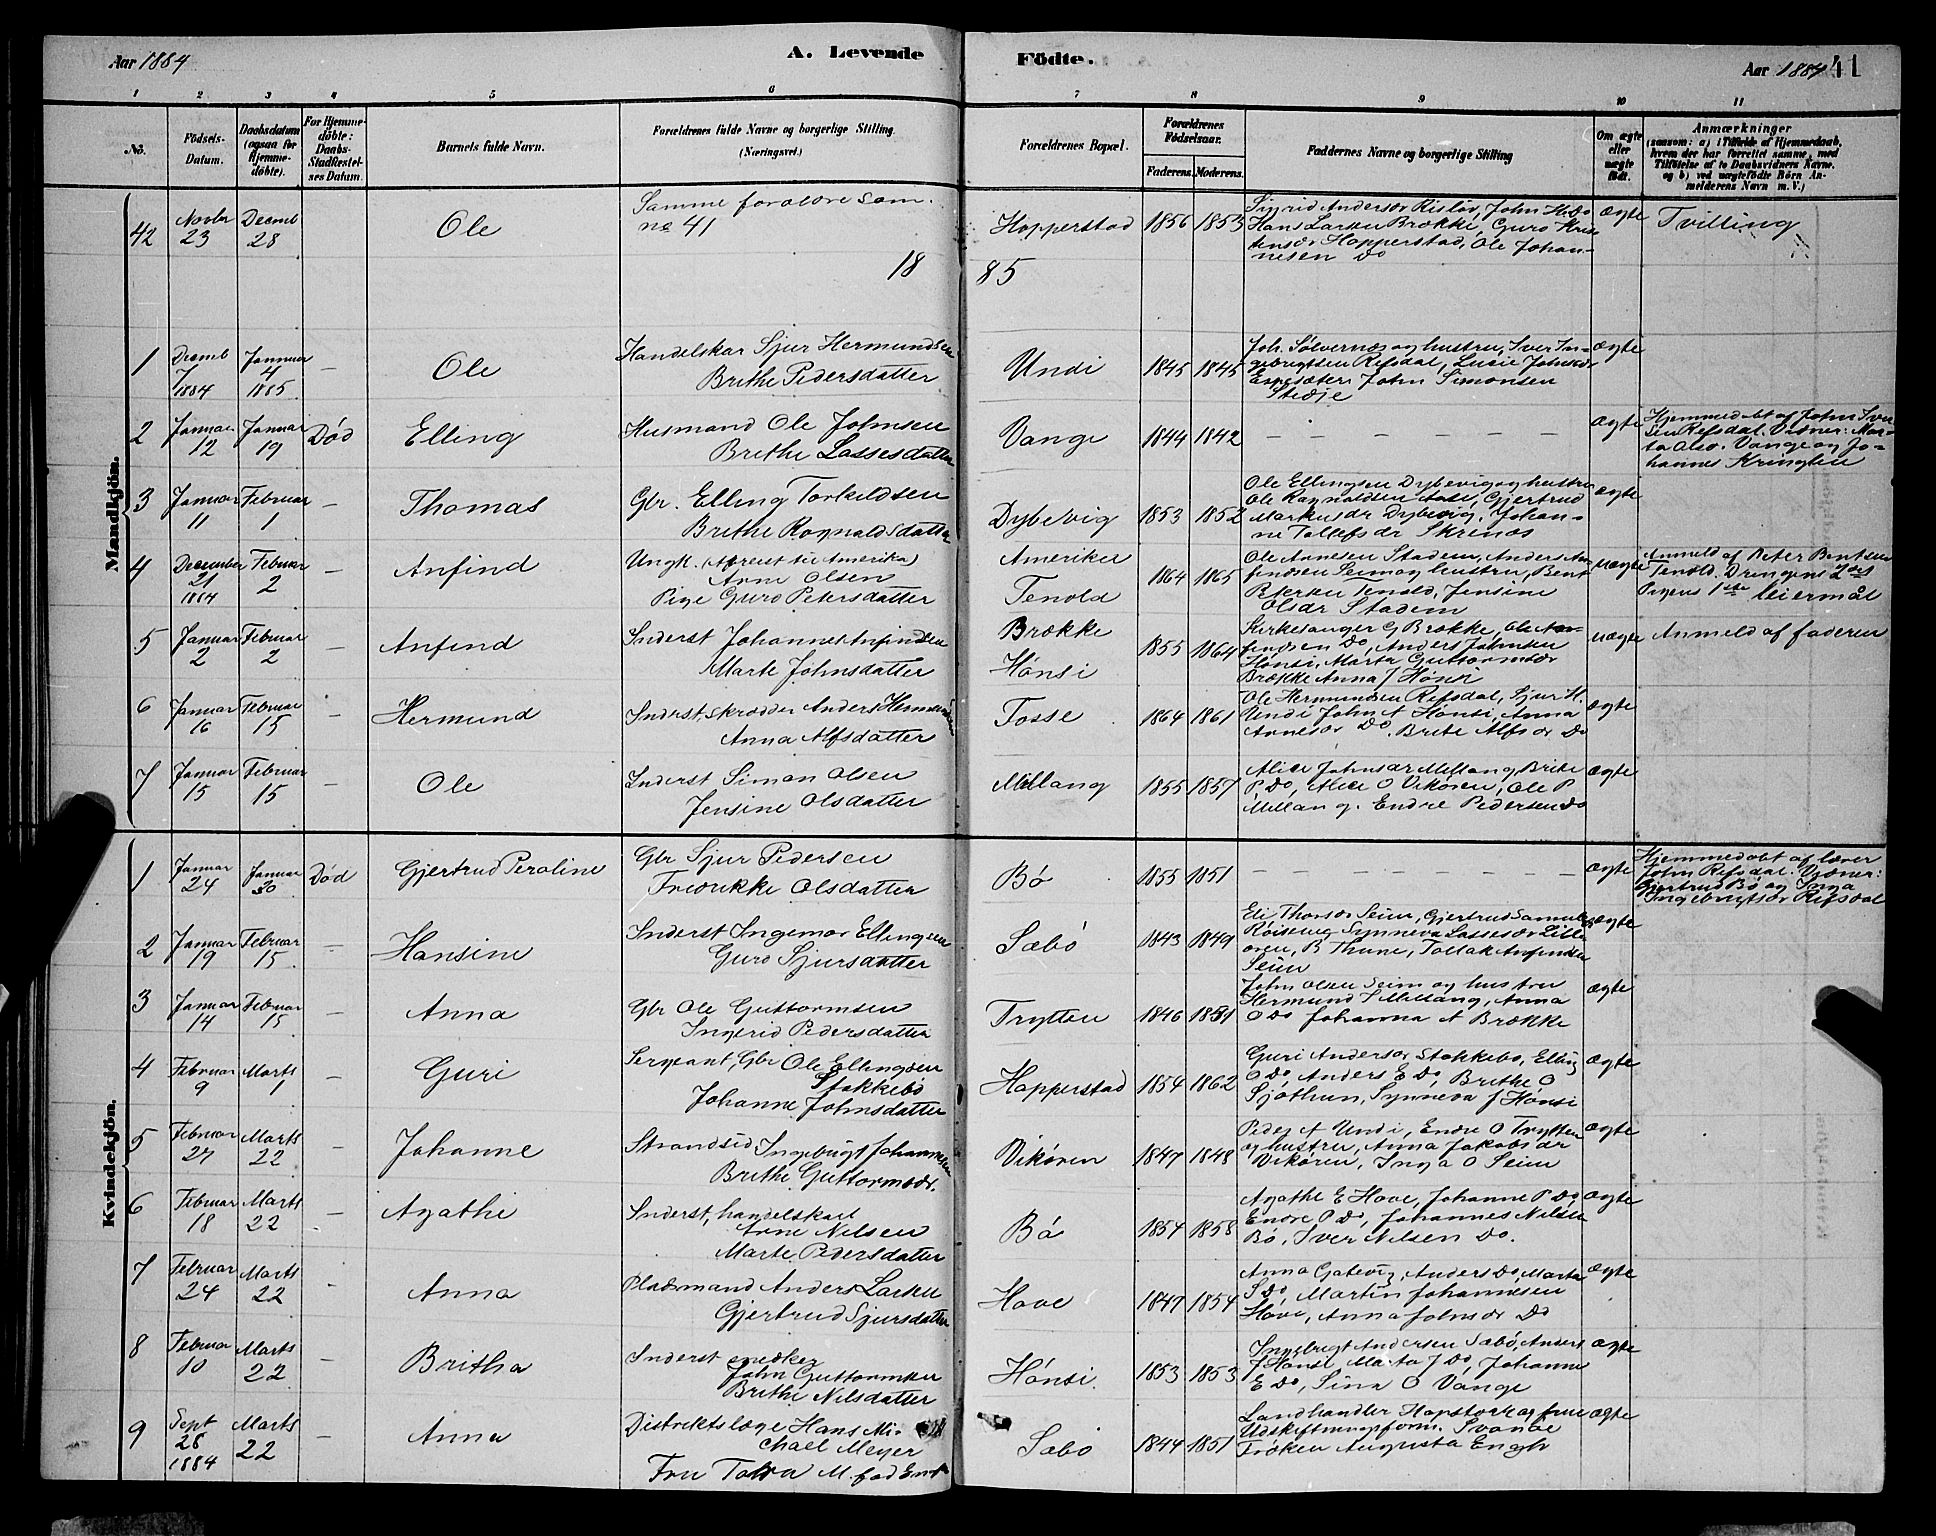 Aar 1884
A. Levende
Födte.
Aar 1884 41
1 2 3 4 5 6 7 8 9 10 11
No.
Födsels-Datum.
Daabsdatum (ogsaa for Hjemmedöbte).
For Hjemmedöbte: Daabs-Stadfæstelses Datum.
Barnets fulde Navn.
Forældrenes fulde Navne og borgerlige Stilling. (Næringsvei.)
Forældrenes Bopæl.
Forældrenes Födselsaar.
Faderens. Moderens.
Faddernes Navne og borgerlige Stilling
Om ægte eller uægte födt.
Anmærkninger
(saasom: a) i Tilfælde af Hjemmedaab, hvem der har forrettet samme, med Tilföielse af to Daabsvidners Navne. og b) ved uægtefödte Börn Anmelderens Navn m. V.)
Mandkjön.
42 Novbr 23 Decemb 28 Ole Samme forældre som no 41 Hopperstad 1856 1853 Sigrid Andersdr Risløv, John H. Do
Hans Larsen Brække, Guro Kristensdr Hopperstad, Ole Johannesen Do ægte Tvilling
1885
1 Decemb 7 1884 Januar 4 1885 – Ole Handelskar Sjur Hermundsen
Brithe Pedersdatter Undi 1845 1845 Joh. Sølvernæs og hustru, Iver Ingebrigtsen Refsdal, Lucie Johnsdr
Espesæter, John Simonsen
Stedje ægte
2 Januar 12 Januar 19 Död Elling Husmand Ole Johnsen
Brithe Lassesdatter Vange 1844 1842 – – – – – – ægte Hjemmedøbt af John Iversen Refsdal. Vidner: Marta Olsd. Vange og Johannes
3 Januar 11 Februar 1 – Thomas Gbr. Elling Torkildsen
Brithe Rognaldsdatter Dybevig 1853 1852 Ole Ellingsen Dybevig og hustru
Ole Ragnaldsen Aase, Gjertrud
Markusdr Dybevig, Johanne Tollefsdr Skrenes ægte
4 December 21 1884 Februar 2 – Anfind Ungk. (Afreist til Amerika)
Arne Olsen
Pige Guro Petersdatter Amerika
Tenold 1864 1865 Ole Arnesen Stadem, Anders Anfindsen Seim og hustru, Bent
Tenold, Jensine
Olsdr Stadem uægte Anmeld af Peter Bentsen
Tenold. Drengens 2det
Pigens 1ste leiermål
5 Januar 2 Februar 2 – Anfind Inderst Johannes Anfindsen
Marte Johnsdatter Brække
Hønsi 1855 1864 Kirkesanger G Brække, Ole Anfindsen Do, Anders Johnsen
Hønsi, Marta Guttormsdr
Brække Anna J Hønsi uægte Anmeld af faderen
6 Januar 16 Februar 15 – Hermund Inderst, skrædder Anders Hermundsen
Anna Alfsdatter Tosse 1864 1861 Ole Hermundsen Refsdal, Sjur H.
Undi John A Hønsi, Anna
Arnesdr Do. Brite Alfsdr Do ægte
7 Januar 15 Februar 15 – Ole Inderst Simon Olsen
Jensine Olsdatter Millang 1855 1857 Alice Johnsdr Millang, Brite
P Do, Alice O Vikøren, Ole P
Millang. Endre Pedersen Do ægte
Kvindekjön.
1 Januar 24 Januar 30 Död Gjertrud Peroline Gbr Sjur Pedersen
Fredrikke Olsdatter Bö 1855 1851 – – – – – – ægte Hjemmedøbt af lærer
John Refsdal. Vidner:
Gjertrud Bø og Inga
Ingebrigtsdr Refsdal
2 Januar 19 Februar 15 – Hansine Inderst Ingemar Ellingsen
Guro Sjursdatter Sæbö 1843 1849 Eli Thorsdr Seim, Gjertrud
Synneva Lassesdr
B Thune, Tollak Anfindsen
Seim ægte
3 Januar 14 Februar 15 – Anna Gbr Ole Guttormsen
Ingerid Pedersdatter Trytten 1846 1851 John Olsen Seim og hustru
Hermund S Millang, Anna
O Do Johanna A Brække ægte
4 Februar 9 Marts 1 – Guri Sergeant, Gbr Ole Ellingsen
Stokkebö
Johanne Johnsdatter Hopperstad 1854 1862 Guri Andersdr Stokkebø, Elling
O Do, Anders E Do, Brithe O
Sjøthun, Synneva J Hønsi ægte
5 Februar 27 Marts 22 – Johanne Strandsid. Ingebrigt Johannesen
Brithe Guttormsdr. Vikøren 1847 1848 Peder A Undi, Endre O Trytten
og hustru, Anna Jakobsdr
Vikøren, Inga O Seim ægte
6 Februar 18 Marts 22 – Agathe Inderst, handelskarl
Arne Nilsen
Marte Pedersdatter Bö 1854 1858 Agathe E Hove, Johanne P Do,
Endre P Do, Johannes Nilsen
Bø, Iver Nilsen Do. ægte
7 Februar 24 Marts 22 – Anna Pladsmand Anders Larsen
Gjertrud Sjursdatter Hove 1849 1854 Anna Gatevig, Anders Do, Marta
S Do, Martin Johannesen
Hove, Anna Johnsdr Do ægte
8 Februar 10 Marts 22 – Britha Inderst snedker
John Guttormsen
Brithe Nilsdatter Hönsi 1853 1853 Ingebrigt Andersen Sæbø, Anders
J Hønsi Marta J Do, Johanne
E Do, Sina O Vange ægte
9 Sept 28 1884 Marts 22 – Anna Distriktslæge Hans Michael Meyer
Fru M. fød Sæbö 1844 1851 Landhandler Hopstock og frue
Udskiftningsform. Svanøe
Frøken Augusta Engh ægte